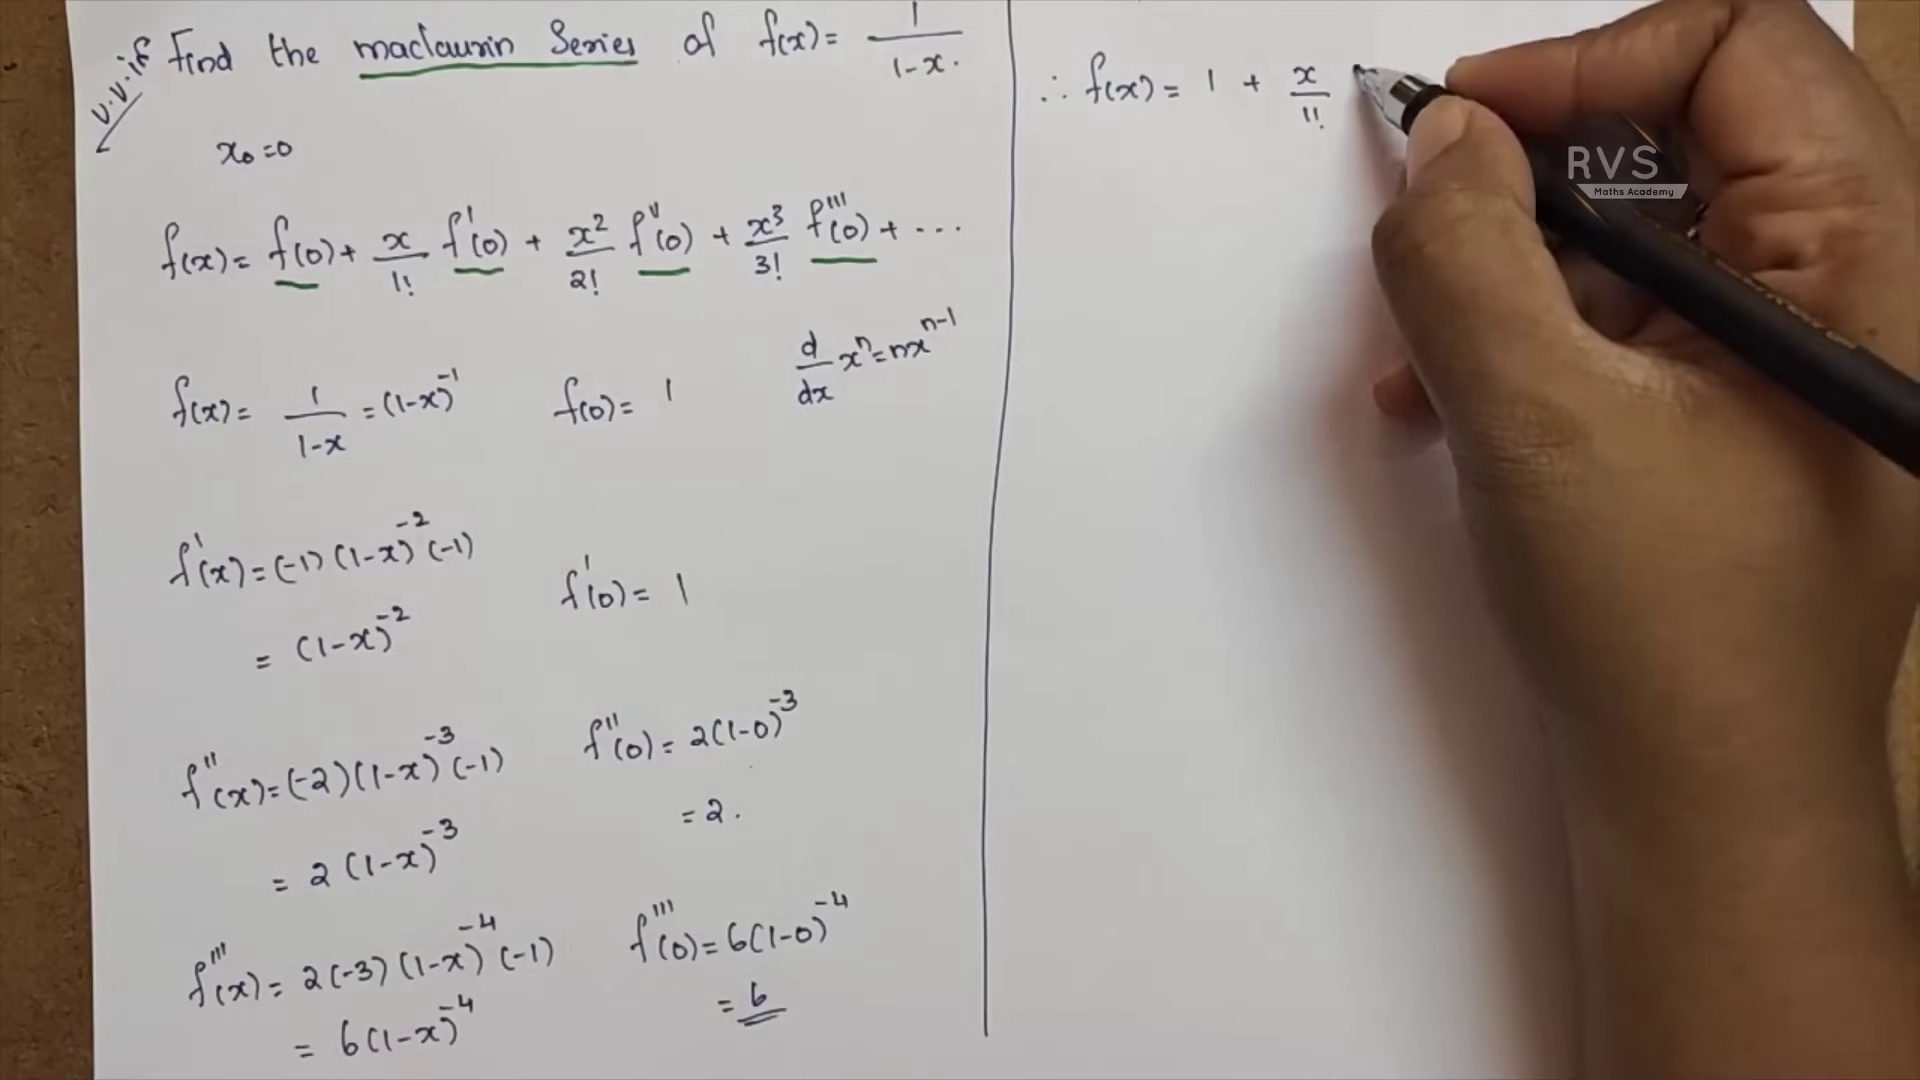 v.v.if Find the maclaurin Series of f(x) = 1/(1-x).
x₀=0
f(x) = f(0) + x/1! f'(0) + x²/2! f''(0) + x³/3! f'''(0) + ...
d/dx xⁿ = nxⁿ⁻¹
f(x) = 1/(1-x) = (1-x)⁻¹ f(0) = 1
f'(x) = (-1)(1-x)⁻²(-1)
f'(0) = 1
= (1-x)⁻²
f''(x) = (-2)(1-x)⁻³(-1) f''(0) = 2(1-0)⁻³
= 2.
= 2(1-x)⁻³
f'''(x) = 2(-3)(1-x)⁻⁴(-1) f'''(0) = 6(1-0)⁻⁴
= 6
= 6(1-x)⁻⁴
∴ f(x) = 1 + x/1!
RVS
Maths Academy